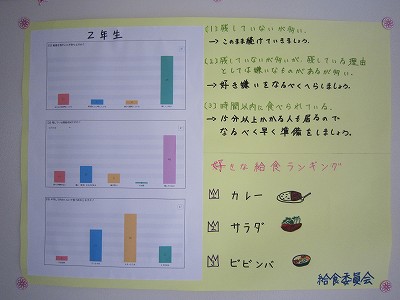 2年生
(1)残していないが多い。
→このまま続けていきましょう。
(2)残していないが多いが、残している理由
としては嫌いなものがあるが多い。
→好き嫌いをなるべくへらしましょう。
(3)時間以内に食べられている。
→15分以上かかる人も居るので
なるべく早く準備をしましょう。
好きな給食ランキング
カレー
サラダ
ビビンバ
給食委員会